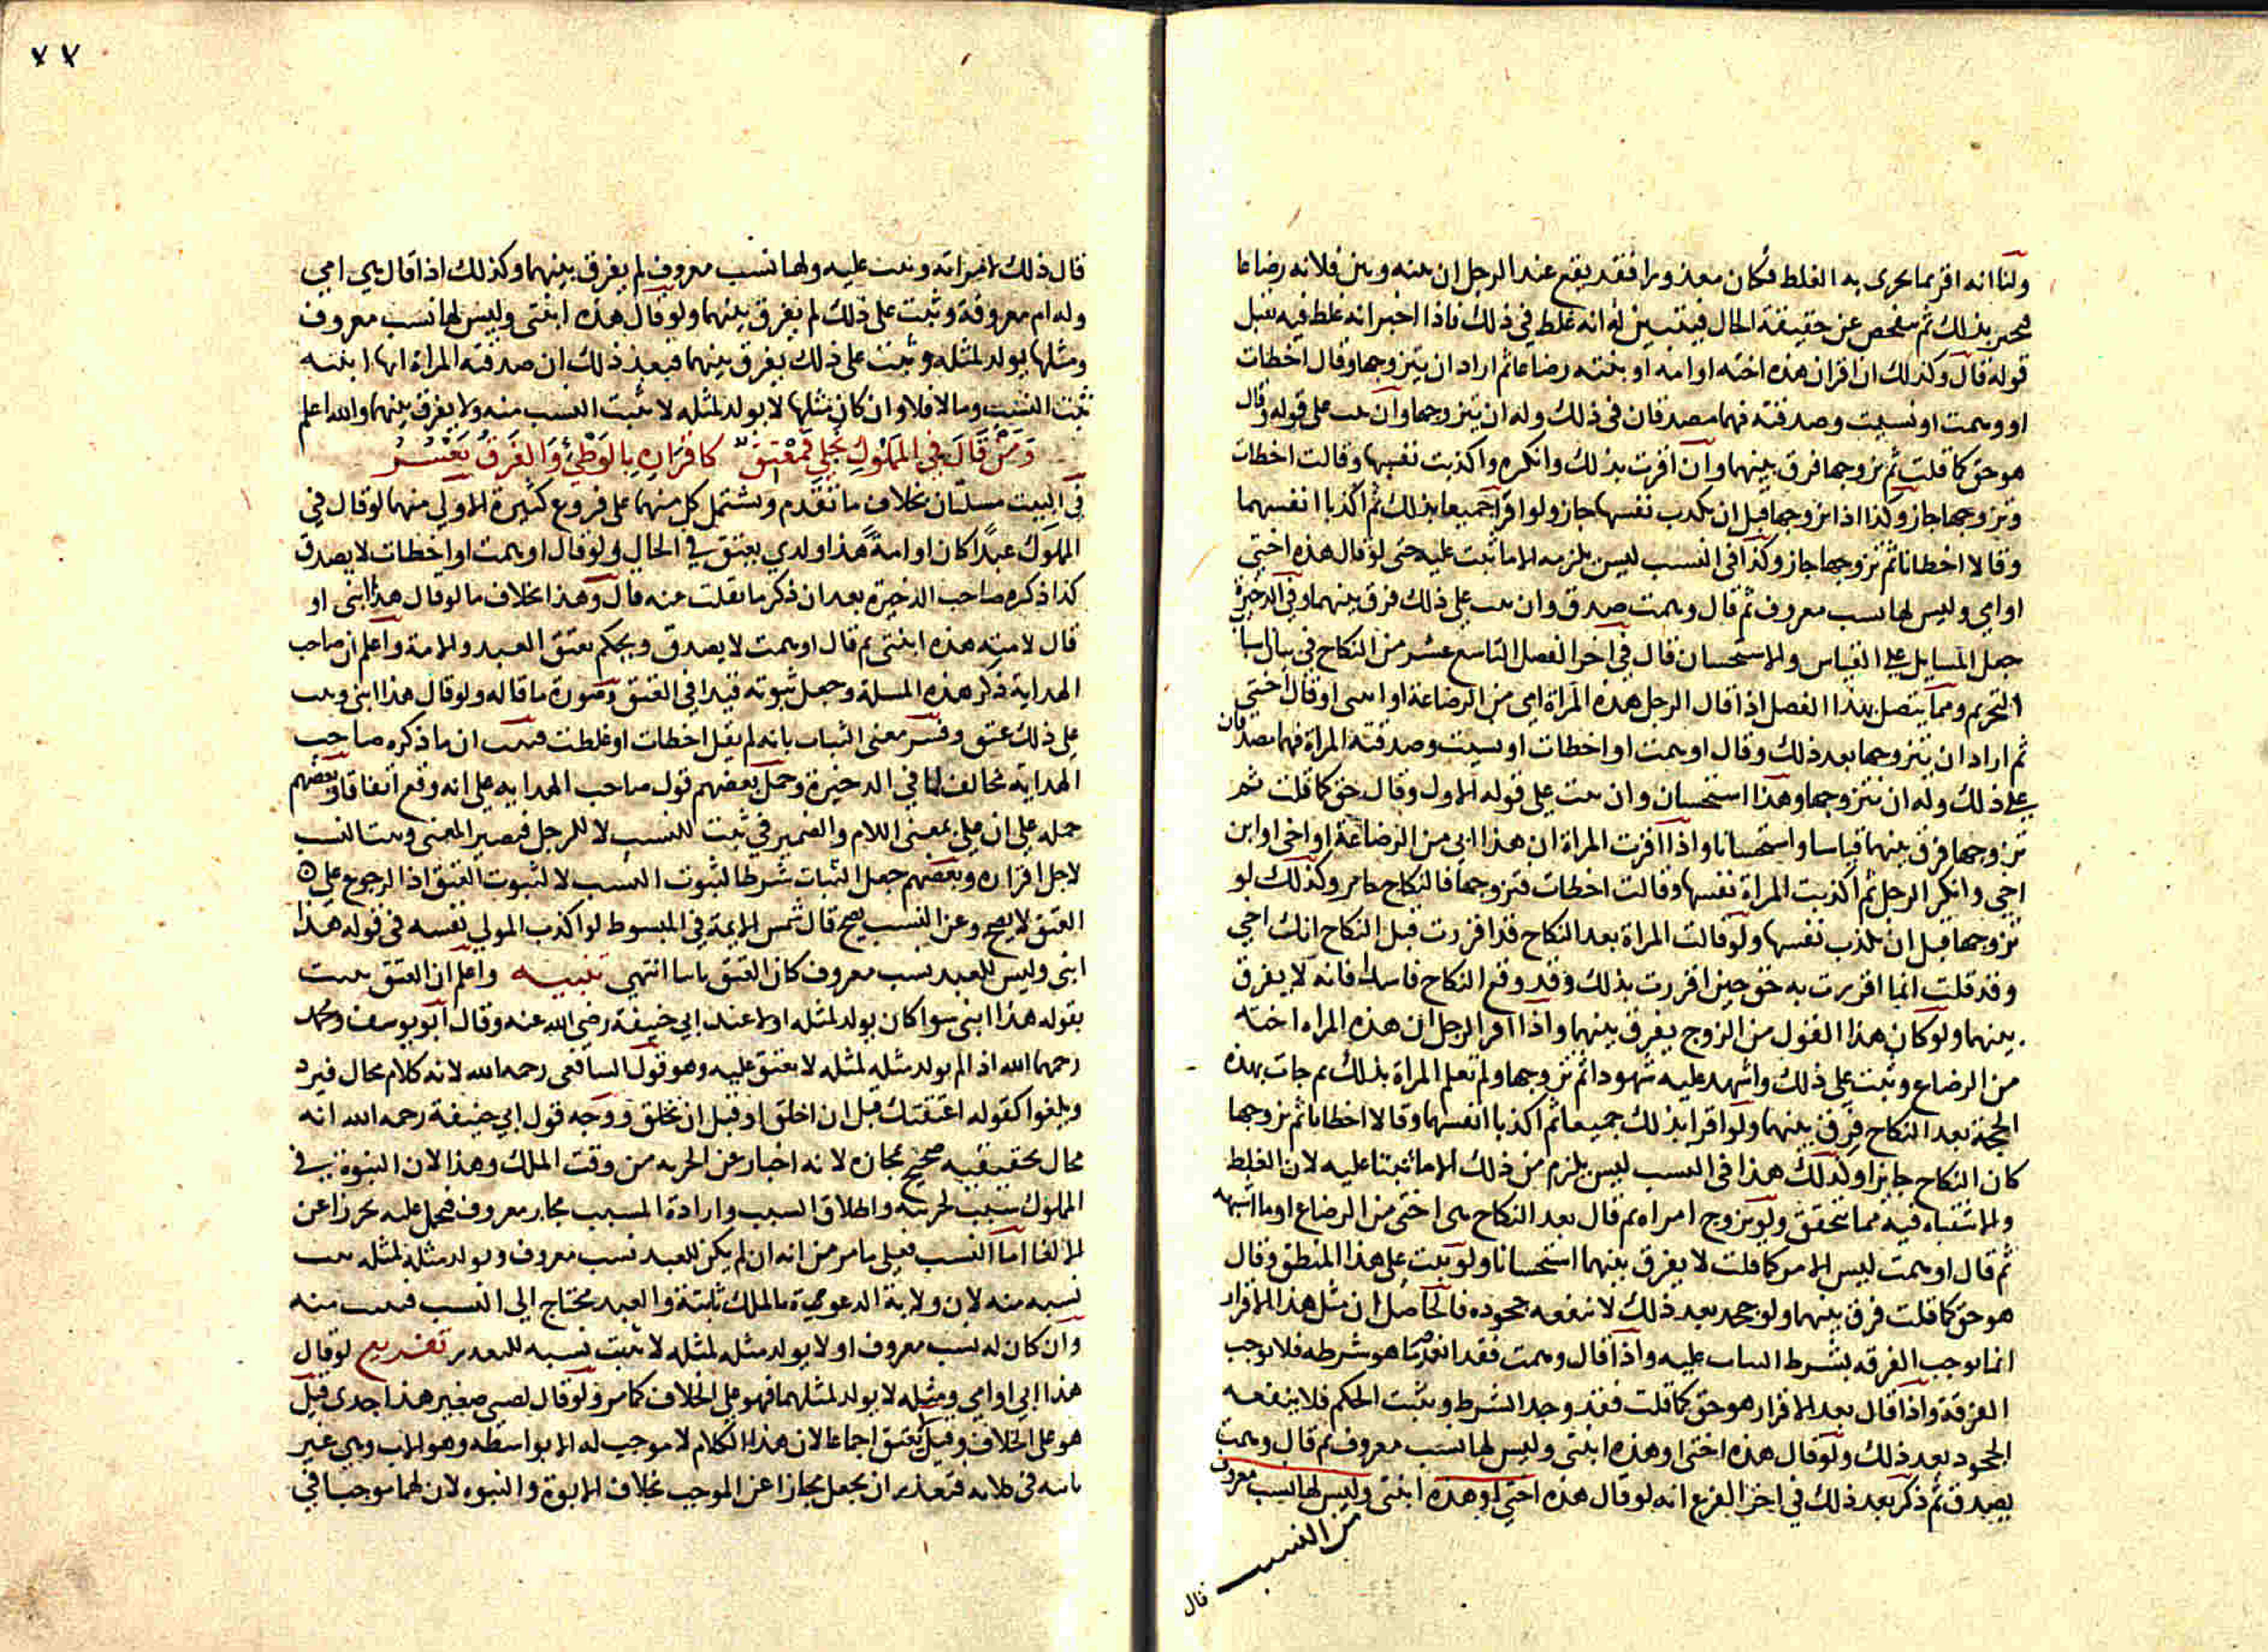 ولنا انه اقر بما يجرى به الغلط فكان معذورا فقد يقع عند الرجل ان بينه وبين فلانه رضاعا
فيخبر بذلك ثم يتفحص عن حقيقة الحال فيتبين له انه غلط في ذلك فاذا اخبر انه غلط فيه يقبل
قوله قال وكذلك ان اقر ان هذه اخته او امه او بنته رضاعا ثم اراد ان يتزوجها وقال اخطات
او وهمت او نسيت وصدقته فهما مصدقان في ذلك وله ان يتزوجها وان ثبت على قوله وقال
هو حق كما قلت ثم تزوجها فرق بينهما وان اقرت بذلك وانكره واكذبت نفسها وقالت اخطات
وتزوجها جاز وكذا اذا تزوجها قبل ان تكذب نفسها جاز ولو اقرا جميعا بذلك ثم اكذبا انفسهما
وقالا اخطانا ثم تزوجها جاز وكذا في النسب ليس يلزمه الا ما ثبت عليه حتى لو قال هذه اختي
او امي وليس لها نسب معروف ثم قال وهمت صدق وان ثبت على ذلك فرق بينهما وفي الذخيرة
جعل المسايل على القياس والاستحسان قال في اخر الفصل التاسع عشر من النكاح في بيان اسباب
التحريم ومما يتصل بهذا الفصل اذا قال الرجل هذه المراة امي من الرضاعة او ابنتي او قال اختي
ثم اراد ان يتزوجها بعد ذلك وقال اوهمت او اخطات او نسيت وصدقته المراة فهما مصدقان
على ذلك وله ان يتزوجها وهذا استحسان وان ثبت على قوله الاول وقال حق كما قلت ثم
تزوجها فرق بينهما قياسا واستحسانا واذا اقرت المراة ان هذا ابي من الرضاعة او اخي او ابن
اخي وانكر الرجل ثم اكذبت المراة نفسها وقالت اخطات فتزوجها فالنكاح جايز وكذلك لو
تزوجها قبل ان تكذب نفسها ولو قالت المراة بعد النكاح قد اقررت قبل النكاح انك اخي
وقد قلت انما اقررت به حق حين اقررت بذلك وقد وقع النكاح فاسدا فانه لا يفرق
بينهما ولو كان هذا القول من الزوج يفرق بينهما واذا اقر الرجل ان هذه المراه اخته
من الرضاع وثبت على ذلك واشهد عليه شهودا ثم تزوجها ولم تعلم المراة بذلك ثم جات بهذه
الحجة بعد النكاح فرق بينهما ولو اقرا بذلك جميعا ثم اكذبا انفسهما وقالا اخطانا ثم تزوجها
كان النكاح جايزا وكذلك هذا في النسب ليس يلزم من ذلك الا ما ثبتا عليه لان الغلط
والاشتباه فيه مما يتحقق ولو تزوج امراه ثم قال بعد النكاح هي اختي من الرضاع او ما اشبهه
ثم قال اوهمت ليس الامر كما قلت لا يفرق بينهما استحسانا ولو ثبت على هذا المنطق وقال
هو حق كما قلت فرق بينهما ولو جحد بعد ذلك لا ينفعه جحوده فالحاصل ان مثل هذا الاقرار
انما يوجب الفرقه بشرط الثبات عليه واذا قال وهمت فقد انعدم ما هو شرطه فلا يوجب
الفرقة واذا قال بعد الاقرار هو حق كما قلت فقد وجد الشرط ويثبت الحكم فلا ينفعه
الجحود بعد ذلك ولو قال هذه اختي او هذه ابنتي وليس لها نسب معروف ثم قال وهمت
يصدق ثم ذكر بعد ذلك في اخر الفرع انه لو قال هذه اختي او هذه ابنتي وليس لها نسب معروف
من النسب
قال
٧٧
قال ذلك لامراته وثبت عليه ولها نسب معروف لم يفرق بينهما وكذلك اذا قال هي امي
وله ام معروفة وثبت على ذلك لم يفرق بينهما ولو قال هذه ابنتي وليس لها نسب معروف
ومثلها يولد لمثله وثبت على ذلك يفرق بينهما فبعد ذلك ان صدقته المراة انها ابنته
ثبت النسب ومالا فلا وان كان مثلها لا يولد لمثله لا يثبت النسب منه ولا يفرق بينهما والله اعلم
وَمَنْ قَالَ فِي المَمْلُوكِ نَجْلِي فَمُعْتَقٌ كاقراره بالوطئ وَالفَرقُ يَعْسُرُ
في البيت مسلتان بخلاف ما تقدم ويشتمل كل منهما على فروع كثيرة الاولي منهما لو قال في
المملوك عبدا كان او امة هذا ولدي يعتق في الحال ولو قال اوهمت او اخطات لا يصدق
كذا ذكره صاحب الذخيرة بعد ان ذكر ما نقلت منه قال وهذا بخلاف ما لو قال هذا ابني او
قال لامته هذه ابنتي ثم قال اوهمت لا يصدق ويحكم بعتق العبد والامة واعلم ان صاحب
الهداية ذكر هذه المسلة وجعل ثبوته قيدا في العتق وصورة ما قاله ولو قال هذا ابني وثبت
على ذلك عتق وفسر معنى الثبات بانه لم يقل اخطات او غلطت فثبت ان ما ذكره صاحب
الهداية مخالف لما في الدخيرة وحمل بعضهم قول صاحب الهدايه على انه وقع اتفاقا وبعضهم
حمله على ان على بمعنى اللام والضمير في ثبت للنسب لا للرجل فيصير المعنى وثبت النسب
لاجل اقراره وبعضهم جعل الثبات شرطا لثبوت النسب لا لثبوت العتق اذ الرجوع على
العتق لا يصح وعن النسب يصح قال شمس الايمة في المبسوط لو اكذب المولي نفسه في قوله هذا
ابني وليس للعبد نسب معروف كان العتق ثابتا انتهي تنبيه واعلم ان العتق يثبت
بقوله هذا ابني سوا كان يولد لمثله او لا عند ابي حنيفة رضي الله عنه وقال ابو يوسف ومحمد
رحمهما الله اذا لم يولد مثله لمثله لا يعتق عليه وهو قول الشافعي رحمه الله لانه كلام محال فيرد
ويلغوا كقوله اعتقتك قبل ان اخلق او قبل ان تخلق ووجه قول ابي حنيفة رحمه الله انه
محال بحقيقته صحيح بمجازه لانه اخبار عن الحريه من وقت الملك وهذا لان البنوة في
المملوك سبب لحريته واطلاق السبب وارادة المسبب مجاز معروف فيحمل عليه تحرزا عن
الالغا اما النسب فعلى ما مر من انه ان لم يكن للعبد نسب معروف ويولد مثله لمثله يثبت
نسبه منه لان ولاية الدعوه بالملك ثابتة والعبد محتاج الى النسب فيثبت منه
وان كان له نسب معروف او لا يولد مثله لمثله لا يثبت نسبه للتعذر تفريع لو قال
هذا ابي او امي ومثله لا يولد لمثلهما فهو على الخلاف كما مر ولو قال لصبي صغير هذا جدى قيل
هو على الخلاف وقيل لا يعتق اجماعا لان هذا الكلام لا موجب له الا بواسطه وهو الاب وهي غير
ثابته في كلامه فتعذر ان يجعل مجازا عن الموجب بخلاف الابوة والبنوه لان لهما موجبا في